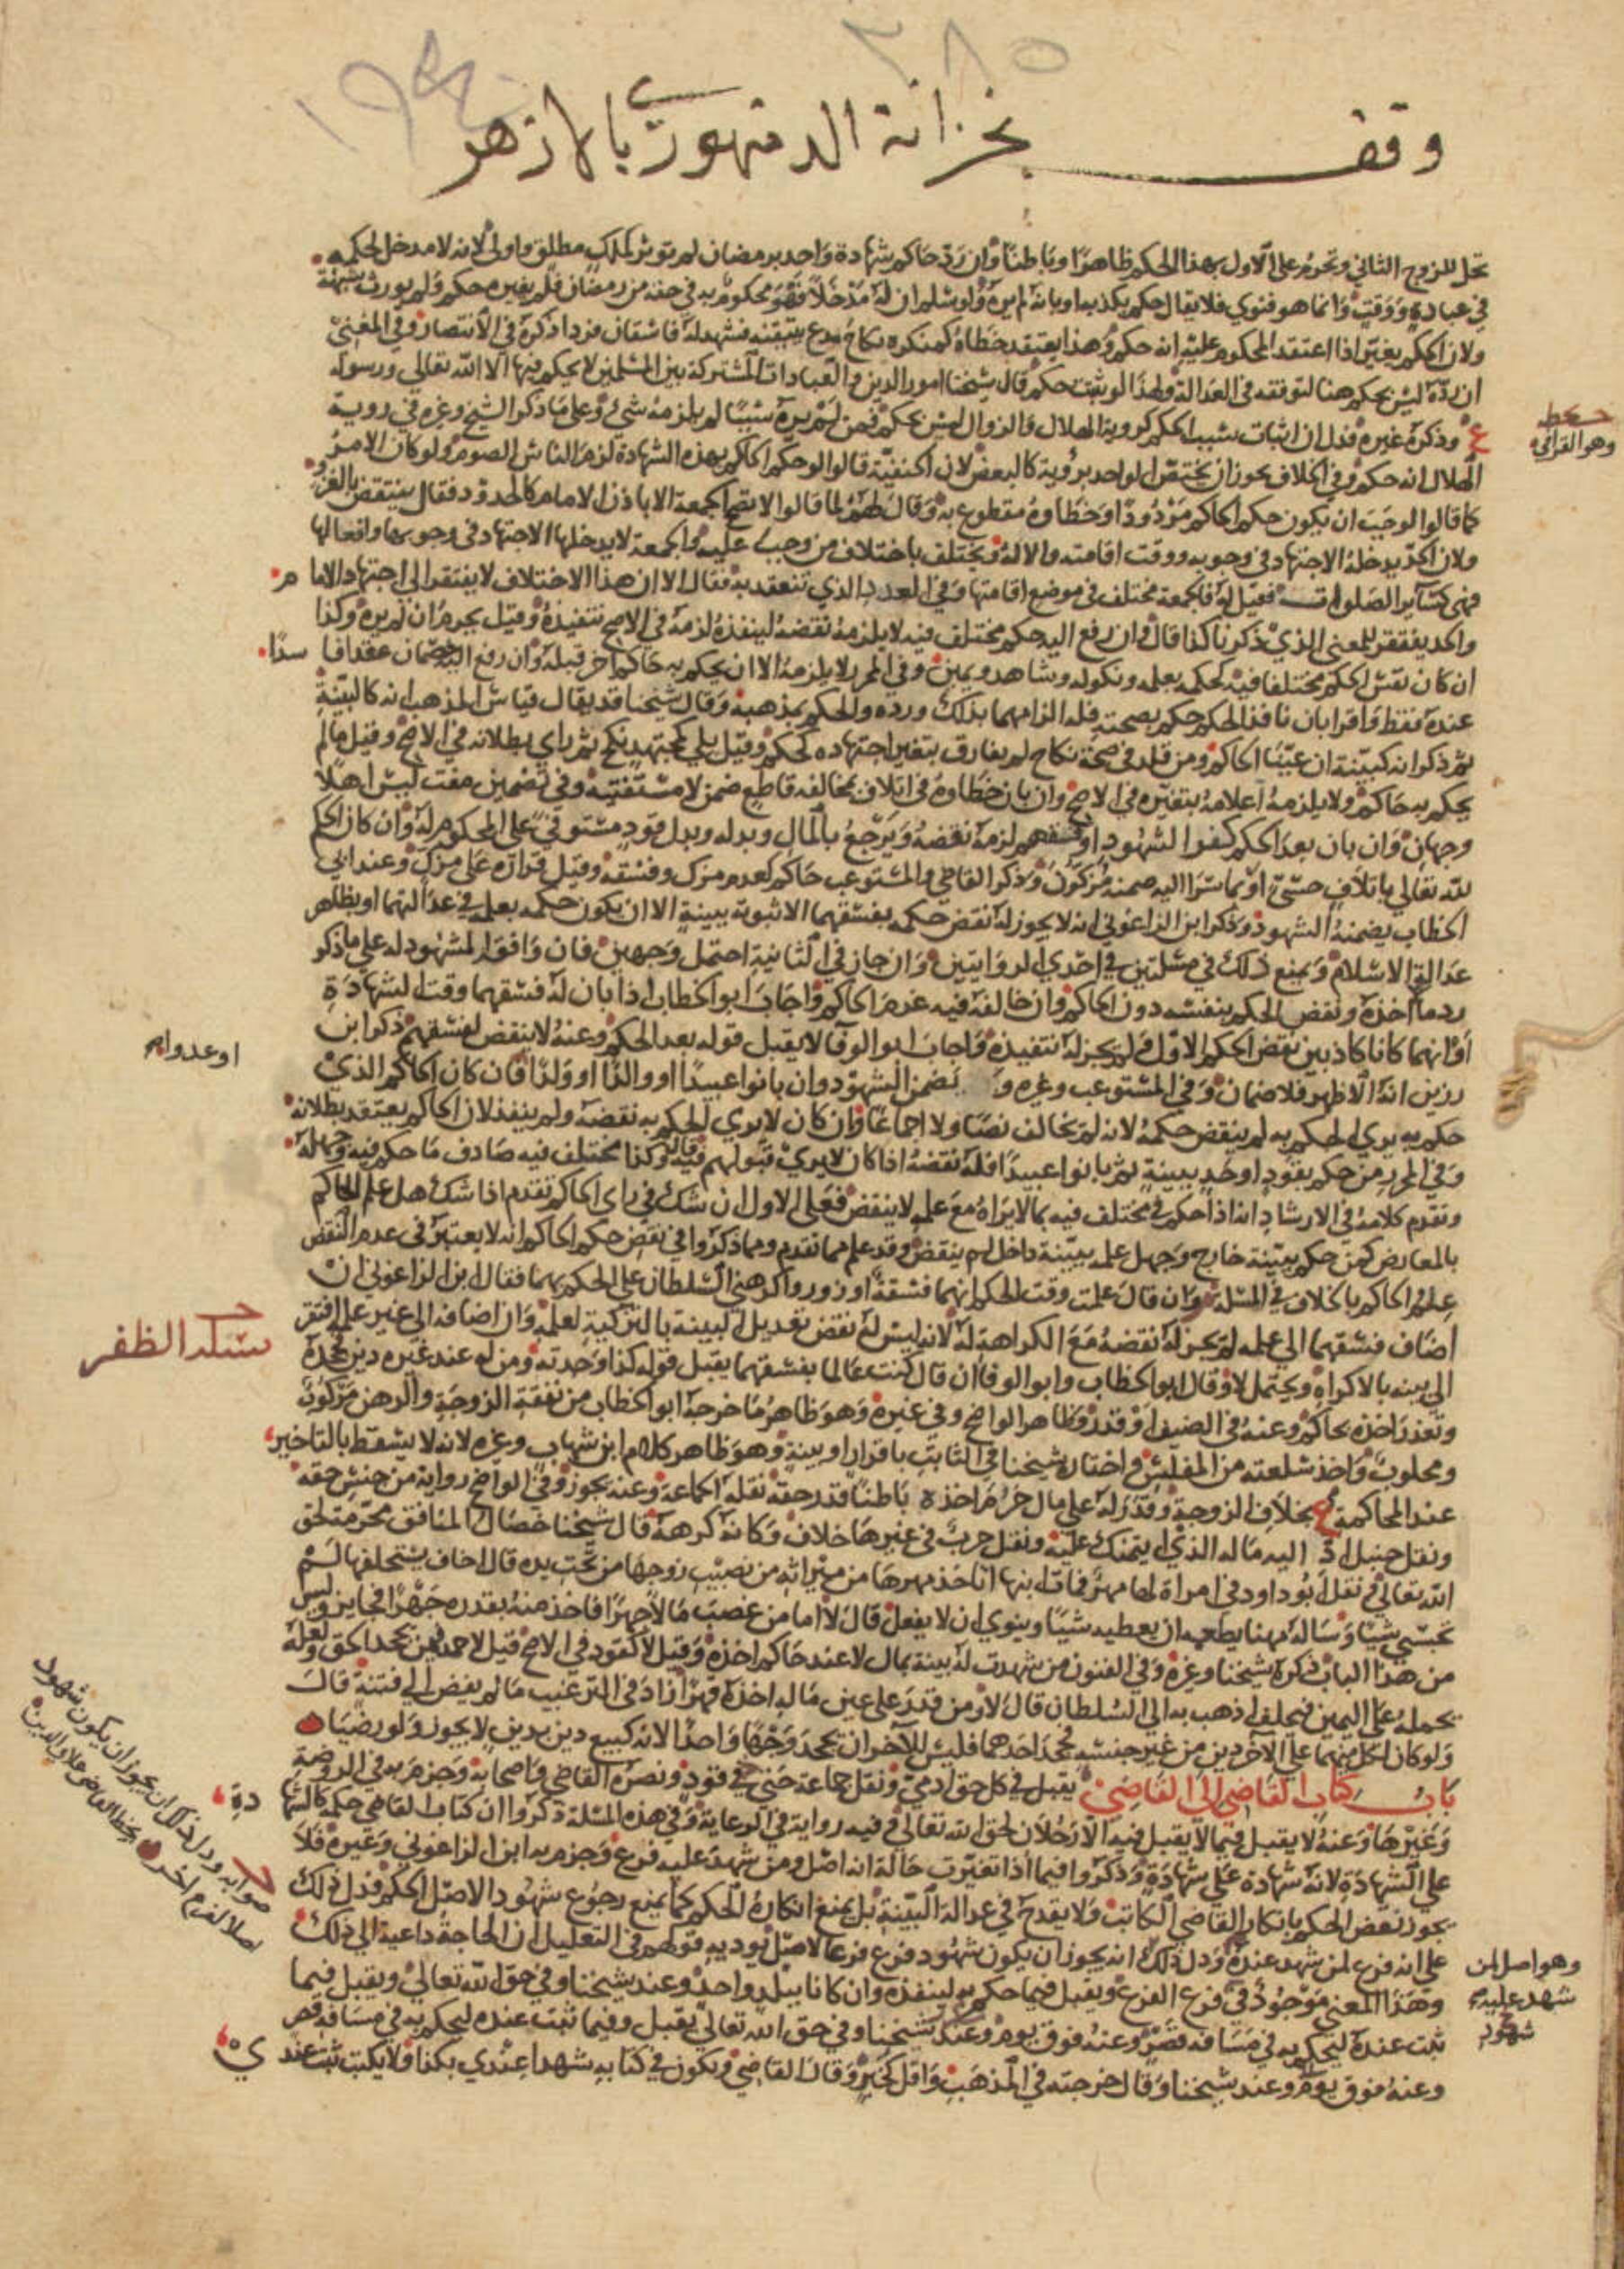 ٢٨٥
وقف بخزانة الدمنهوري بالازهر
تحل للزوج الثاني وتحرم على الاول بهذا الحكم ظاهرا وباطنا وان رد حاكم شهادة واحد برمضان لم توثر كملك مطلق واولى لانه لا مدخل لحكمه
في عبادة ووقت وانما هو فتوي فلا يقال حكم بكذبه او بانه لم يره ولو سلم ان له مدخلا فهو محكوم به في حقه من رمضان فلم يغيره حكم ولم يورث شبهة
ولان الحكم يغير اذا اعتقد المحكوم عليه انه حكم وهذا يعتقد خطاه كمنكرة نكاح مدع يتيقنه فشهد له فاسقان فردا ذكره في الانتصار وفي المغني
ان رده ليس بحكم هنا لتوقفه في العدالة ولهذا لو ثبت حكم قال شيخنا امور الدين والعبادات المشتركة بين المسلمين لا يحكم فيها الا الله تعالي ورسوله
ع وذكره غيره فدل ان اثبات سبب الحكم كروية الهلال والزوال ليس بحكم فمن لم يره سببا لم يلزمه شئ وعلى ما ذكر الشيخ وغيره في روية
الهلال انه حكم وفي الخلاف يجوز ان يختص الواحد بروية كالبعض لان الحنفية قالوا لو حكم الحاكم بهذه الشهادة لزم الناس الصوم ولو كان الامر
كما قالوا لوجب ان يكون حكم الحاكم مردودا وخطاوه مقطوع به وقال لهم لما قالوا لا تصح الجمعة الا باذن الامام كالحدود فقال ينتقض بالغزو
ولان الحد يدخله الاجتهاد في وجوبه ووقت اقامته والالة ويختلف باختلاف من وجب عليه والجمعة لا يدخلها الاجتهاد في وجوبها وافعالها
فهي كسائر الصلوات فقيل له فالجمعة مختلف في موضع اقامتها وفي العدد الذي تنعقد به فقال الا ان هذا الاختلاف لا يفتقر الى اجتهاد الاما م
والحد يفتقر للمعني الذي ذكرنا كذا قال وان رفع اليه حكم مختلف فيه لا يلزمه نقضه لينفذه لزمه في الاصح تنفيذه وقيل يحرم ان لم يره وكذا
ان كان نفس الحكم مختلفا فيه كحكمه بعلمه ونكوله وشاهد ويمين وفي المحرر لا يلزمه الا ان يحكم به حاكم اخر قبله وان رفع اليه خصمان عقدا فا سدا
عنده فقط واقرا بان نافذ الحكم حكم بصحته فله الزامهما بذلك ورده والحكم بمذهبه وقال شيخنا قد يقال قياس المذهب انه كالبينة
ثم ذكر انه كبينة ان عينا الحاكم ومن قلد في صحة نكاح لم يفارق بتغير اجتهاده كحكم وقيل بلي كمجتهد نكح ثم راي بطلانه في الاصح وقيل ما لم
يحكم به حاكم ولا يلزمه اعلامه بتغيره في الاصح وان بان خطاوه في اتلاف بمخالفة قاطع ضمن لا مستفتيه وفي تضمين مفت ليس اهلا
وجهان وان بان بعد الحكم كفر الشهود او فسقهم لزمه نقضه ويرجع بالمال وبدله وبدل قود مستوفي على المحكوم له وان كان الحكم
لله تعالي باتلاف حسي او بما سرا اليه ضمنه مزكون وذكر القاضي والمستوعب حاكم كعدم مزك وفسقه وقيل قراره على مزك وعند ابي
الخطاب يضمنه الشهود وذكر ابن الزاغوني انه لا يجوز له نقض حكمه بفسقهما الا بثبوته ببينة الا ان يكون حكمه بعلمه في عدالتهما او بظاهر
عدالة الاسلام ويمنع ذلك في مسئلتين في احدي الروايتين وان جاز في الثانية احتمل وجهين فان وافق المشهود له على ما ذكر
رد ما اخذه ونقض الحكم بنفسه دون الحاكم وان خالفه فيه غرم الحاكم واجاب ابو الخطاب اذا بان له فسقهما وقت الشهادة
او انهما كانا كاذبين نقض الحكم الاول ولم يجز له تنفيذه واجاب ابو الوفا لا يقبل قوله بعد الحكم وعنه لا ينقض لفسقهم ذكر ابن
رزين انه الاظهر فلا ضمان وفي المستوعب وغيره و يضمن الشهود وان بانوا عبيدا او والدا او ولدا فان كان الحاكم الذي
حكم به يري الحكم به لم ينقض حكمه لانه لم يخالف نصا ولا اجماعا وان كان لا يري الحكم به نقضه ولم ينفذ لان الحاكم يعتقد بطلانه
وفي المحرر من حكم بقود او حد ببينة ثم بانوا عبيدا فله نقضه اذا كان لا يري قبولهم فيه قال وكذا مختلف فيه صادف ما حكم فيه وجهله
وتقدم كلامه في الارشاد انه اذا حكم في مختلف فيه بما لا يراه مع علمه لا ينقض فعلى الاول ان شك في راي الحاكم تقدم اذا شك هل علم الحاكم
بالمعارض كمن حكم ببينة خارج وجهل علمه ببينة داخل لم ينقض وقد علم مما تقدم ومما ذكروا في نقض حكم الحاكم انه لا يعتبر في عدم النقض
علم الحاكم بالخلاف في المسئلة وان قال علمت وقت الحكم انهما فسقة او زور واكرهني السلطان على الحكم بهما فقال ابن الزاغوني ان
اضاف فسقهما الي علمه لم يجز له نقضه مع الكراهة له لانه ليس له نقض تعديل البينة بالتزكية لعلمه وان اضافه الي غير علمه افتقر
الي بينه بالاكراه ويحتمل لا وقال ابو الخطاب وابو الوفا ان قال كنت عالما بفسقهما يقبل قوله كذا وجدته ومن له عند غيره دين جحده
وتعذر اخذه بحاكم وعنه في الضيف او قدر وظاهر الواضح وفي غيره وهو ظاهر ما خرجه ابو الخطاب من نفقة الزوجة والرهن مركوب
ومحلوب واخذ سلعته من المفلس واختاره شيخنا في الثابت باقرار او بينة وهو ظاهر كلام ابن شهاب وغيره لانه لا يسقط بالتاخير
عند المحاكمة ع بخلاف الزوجة وقدر له على مال حرم اخذه باطنا قدر حقه نقله الجماعة وعنه يجوز وفي الواضح رواية من جنس حقه
ونقل حنبل اد اليه ماله الذي ايتمنك عليه ونقل حرب في غيرها خلاف وكانه كرهه قال شيخنا خصال المنافق محرمة لحق
الله تعالي ونقل ابو داود في امراة لها مهر فمات ابنها اتاخذ مهرها من ميراثه من نصيب زوجها من تحت يده قال اخاف يستحلفها لم
تحبسي شيئا وساله مهنا يطعمه ان يعطيه شيئا وينوي ان لا يفعل قال لا اما من غصب مالا جهرا فاخذ منه بقدره جهرا فجايز وليس
من هذا الباب ذكره شيخنا وغيره وفي الفنون من شهدت له بينة بمال لا عند حاكم اخذه وقيل لا كقود في الاصح قيل لاحمد فمن يجحد الحق ولعله
يحمله على اليمين فيحلف اذهب به الى السلطان قال لا ومن قدر على عين ماله اخذه قهرا زاد في الترغيب ما لم يفض الى فتنة قال
ولو كان لكل منهما على الاخر دين من غير جنسه فجحد احدهما فليس للاخر ان يجحد وجها واحدا لانه كبيع دين بدين لا يجوز ولو رضيا
باب كتاب القاضي الى القاضي يقبل في كل حق ادمي ونقل جماعة حتي في قود ونصره القاضي واصحابه وجزم به في الروضة
وغيرها وعنه لا يقبل فيما لا يقبل فيه الا رجلان لحق الله تعالي وفيه رواية في الرعاية وفي هذه المسئلة ذكروا ان كتاب القاضي حكمه كالشها دة
على الشهادة لانه شهادة على شهادة وذكروا فيما اذا تغيرت حاله انه اصل ومن شهد عليه فرع وجزم به ابن الزاغوني وغيره فلا
يجوز نقض الحكم بانكار القاضي الكاتب ولا يقدح في عدالة البينة بل يمنع انكاره الحكم كما يمنع رجوع شهود الاصل الحكم فدل ذلك
على انه فرع لمن شهد عنده ودل ذلك انه يجوز ان يكون شهود فرع فرعا لاصل يوديه قولهم في التعليل ان الحاجة داعية الى ذلك
وهذا المعني موجود في فرع الفرع ويقبل فيما حكم به لينفذه وان كانا ببلد واحد وعند شيخنا وفي حق الله تعالي ويقبل فيما
ثبت عنده ليحكم به في مسافة قصر وعنه فوق يوم وعند شيخنا وفي حق الله تعالي يقبل وفيما ثبت عنده ليحكم به في مسافة قصر
وعنه فوق يوم وعند شيخنا وقال خرجته في المذهب واقل كخبر وقال القاضي ويكون في كتابه شهدا عندي بكذا ولا يكتب ثبت عند ي
وهو القرافي
او عداوة
مسئلة الظفر
صوابه ودل ذلك ان يجوز ان يكون شهود
اصلا لفرع اخر
وهو اصل لمن
شهد عليه
شهود